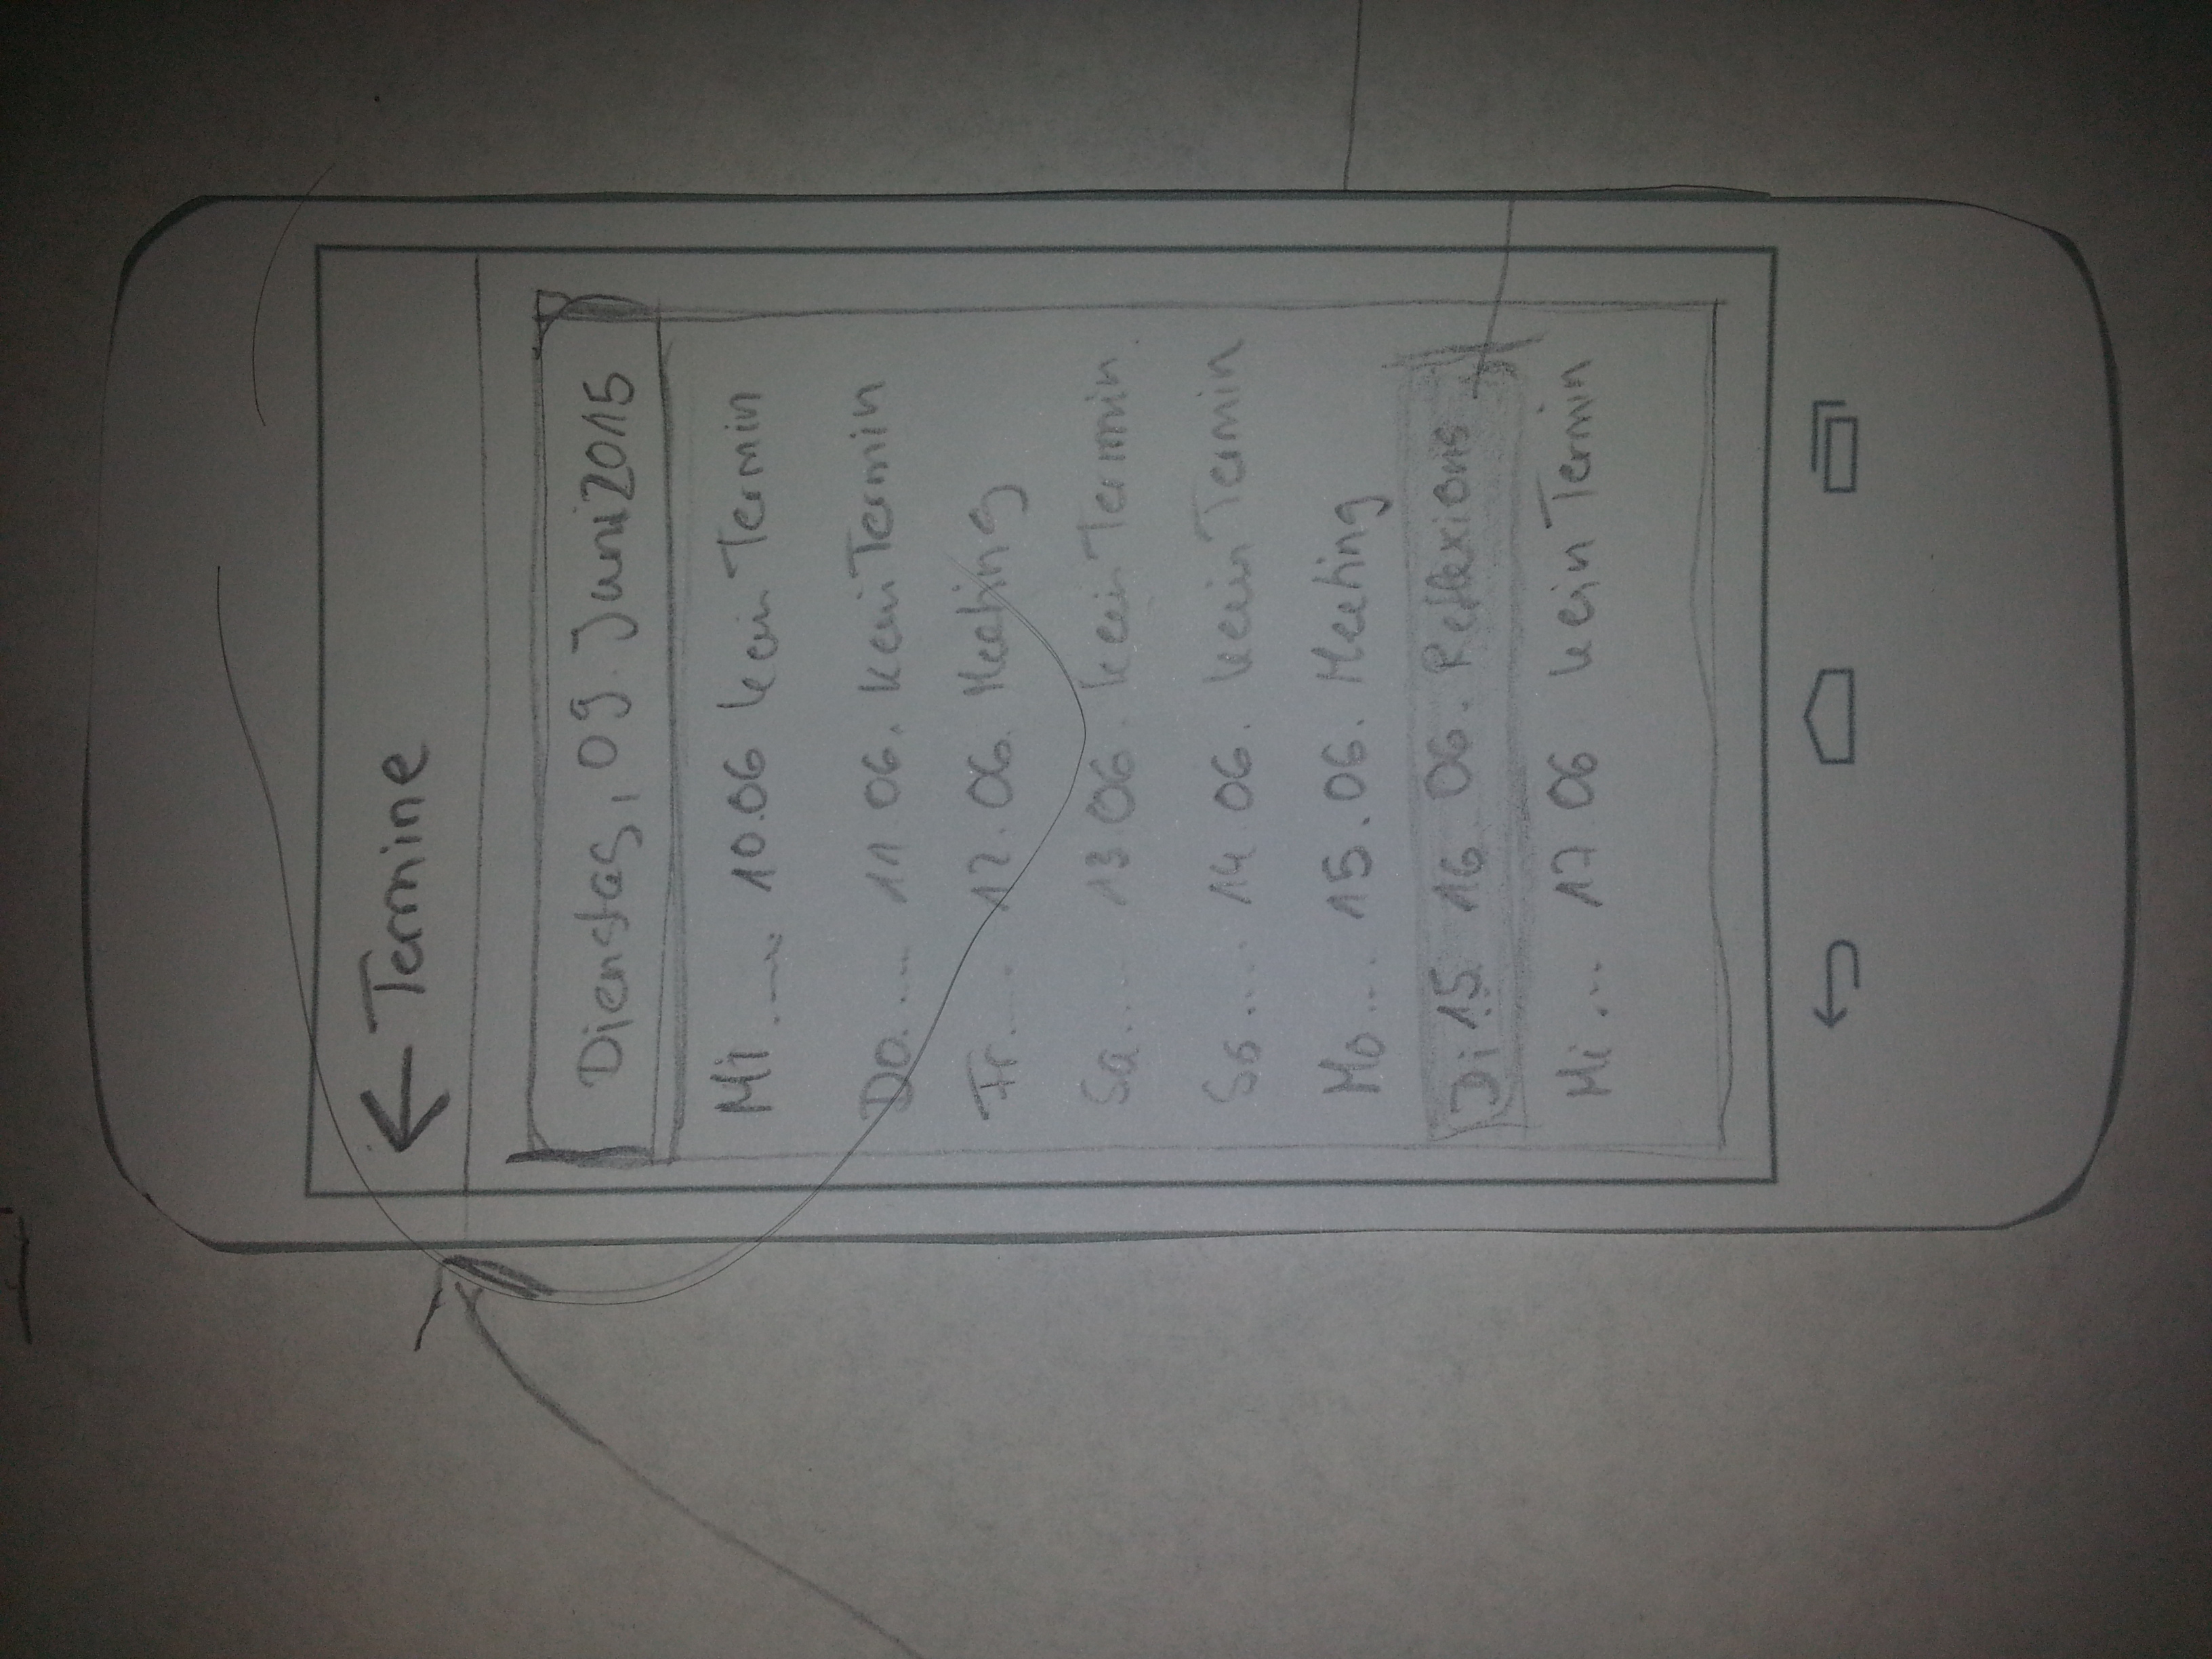 ← Termine
Dienstag, 09. Juni 2015
Mi ..... 10.06 kein Termin
Do .... 11.06. kein Termin
Fr .... 12.06. Meeting
Sa .... 13.06. kein Termin.
So .... 14.06. kein Termin
Mo .... 15.06. Meeting
Di 15 16.06. Reflexions
Mi ... 17 06 kein Termin